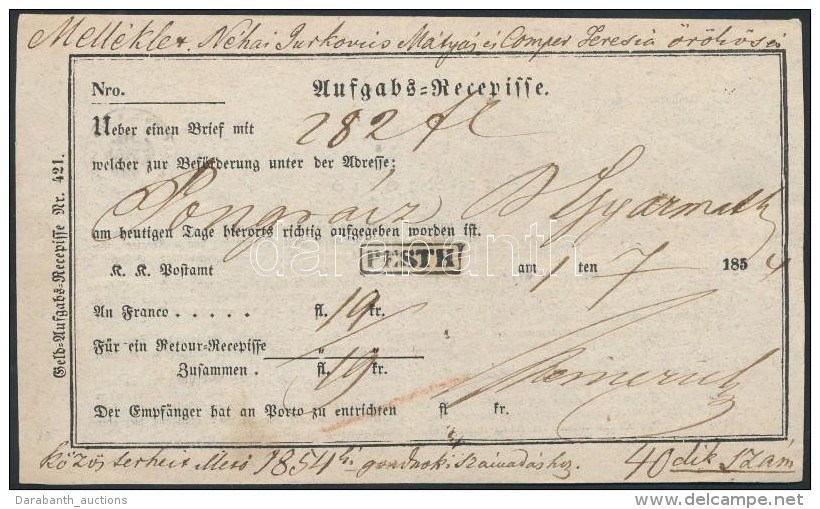 Melléklet. Néhai Jurkovics Mátyás és Comper Teresia örökösei
Nro.
Aufgabs=Recepisse.
Ueber einen Brief mit 282 fl
welcher zur Beförderung unter der Adresse:
Pongrácz B Gyarmath
am heutigen Tage hierorts richtig aufgegeben worden ist.
K. K. Postamt PESTH am 1 ten 7 1854
An Franco . . . . . fl. 19 kr.
Für ein Retour=Recepisse " "
Zusammen . fl. 19 kr.
Der Empfänger hat an Porto zu entrichten fl kr.
Geld=Aufgabs=Recepisse Nr. 421.
közös terheit 1854 gondnoki számadáshoz. 40dik szám
darabanth
Darabanth_auctions
http://www.delcampe.net